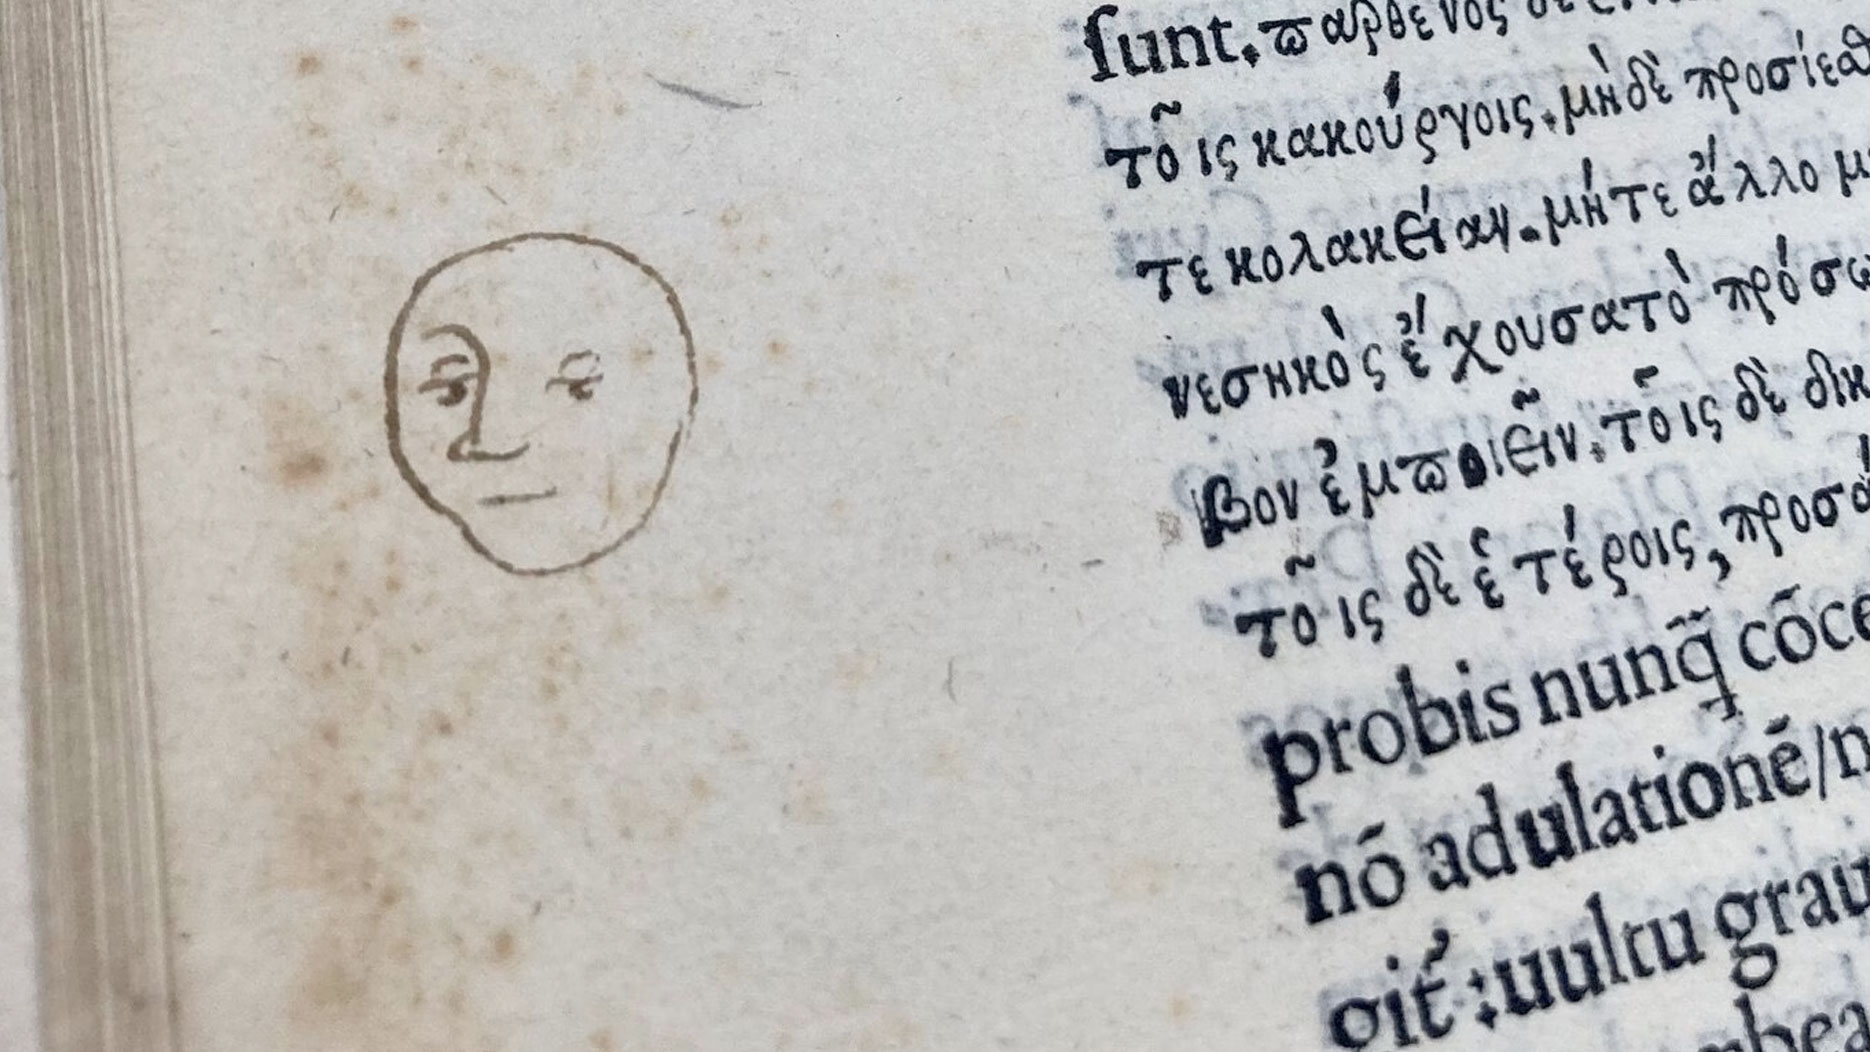 ſunt. παρθενος
τοῖς κακούργοις. μὴδὲ προσίεσθ
τε κολακείαν. μήτε ἄλλο μ
νεσηκὸς ἔχουσατὸ πρόσω
βον ἐμποιεῖν. τοῖς δὲ δικ
τοῖς δὲ ἑτέροις, προσά
probis nunq̃ cōce
nō adulationē/n
git᷑ : uultu grau